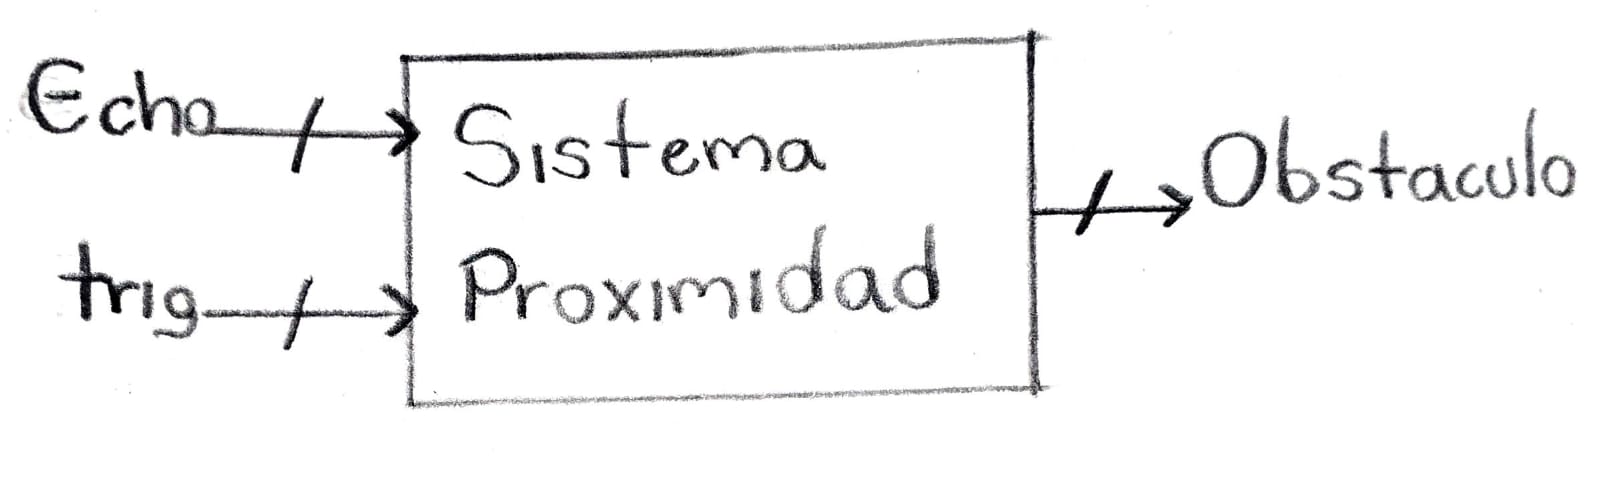 Echo
trig
Sistema
Proximidad
Obstaculo